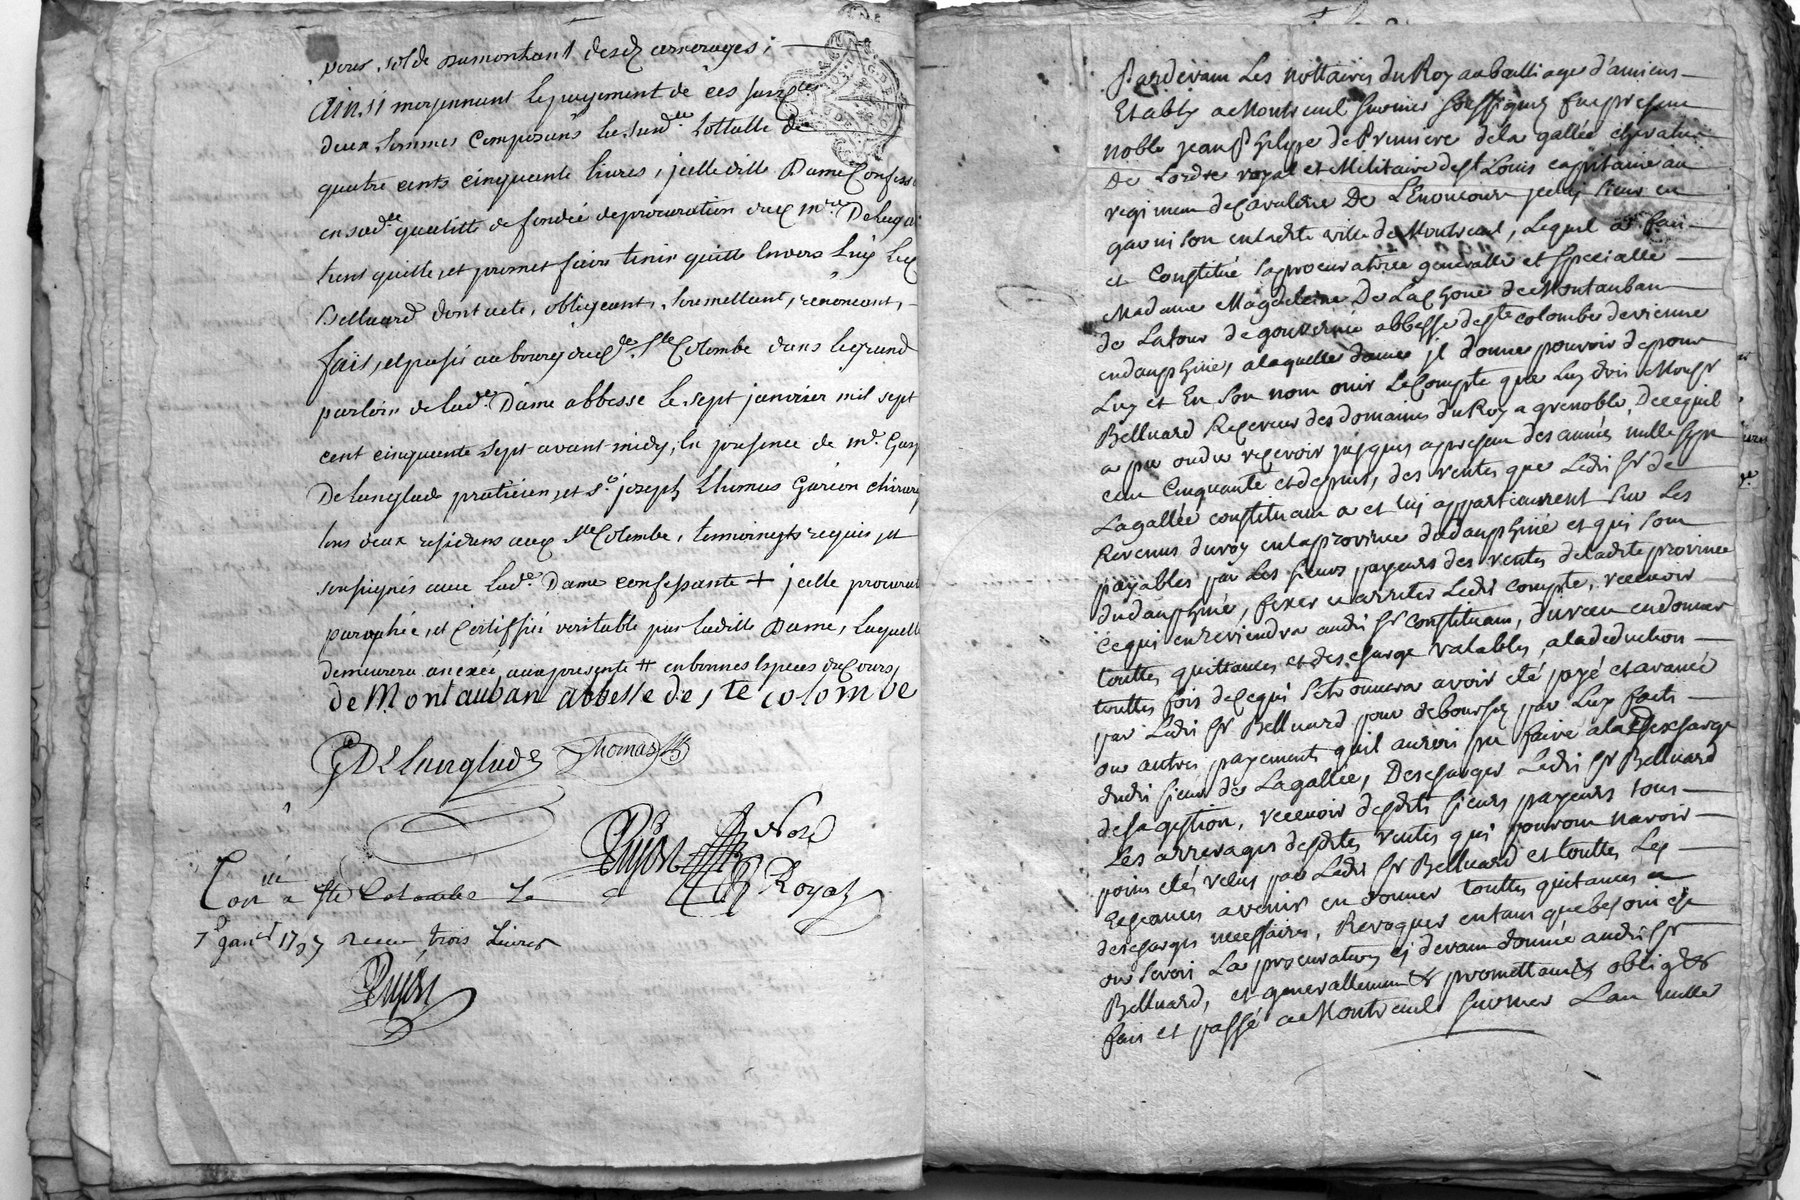 pour solde du montant desd arrerages;
Ainsi moyennant le payement de ces susd.
deux sommes composant la susd.e tottalle de
quatre cents cinquante livres, jcelle ditte Dame Confess
en sad.e qualitté de fondée de procuration dud m.re Delaga
tient quitte, et promet faire tenir quitte Envers luy led
Belluard dont acte, obligeant, soumettant, renoncant,
fait, et passé au bourg dud. Ste Colombe dans le grand
parloir de lad.e Dame abbesse le sept janvier mil sept
cent cinquante sept avant midy, En presence de m.e Gasp
Delanglade praticien, et s.r joseph Thomas Garion chirurg
tous deux residens aud Ste Colombe, temoingts requis et
soussignés avec lad.e Dame confessante + jcelle procurat
paraphée, et Certiffiée veritable par laditte Dame, Laquelle
demeurera anexée aux presente ++ en bonnes Espèces du Cours,
de Montauban abbesse de ste colombe
G DeLanglade Thomas
Dujon Not.
Royal
Con.lé a Ste Colombe Le
7e janv.r 1757 receu trois Livres
Dujon
Pardevant Les nottaires du Roy au bailliage d'amiens
Etably a Montreuil sur mer soussignez fut present
noble jean Philype de Prunière de la gallée chevalier
De Lordre royal et Militaire de st Louis capitaine au
regiment de Cavalerie De L'Enoncour en
garnison en ladite ville de Montreuil, Lequel a fait
et Constitué sa procuratrice generalle et specialle
Madame Magdeleine De La de Montauban
de Latour de gouvernée abbesse de ste colombe de vienne
en dauphiné, a laquelle dame jl donne pouvoir de pour
Luy et En son nom ouir Le Compte que Luy doit Monsr
Belluard Receveur des domaines du Roy a grenoble, De ce quil
a pu ou du recevoir jusques a present des année mille sept
cent Cinquante et depuis, des rentes que Ledit Sr de
Lagallée constituant a et luy appartiennent sur Les
Revenus du roy en la province de dauphiné et qui sont
payables par Les sieurs payeurs des rentes de ladite province
du dauphiné, fixer et arreter Ledit compte, recevoir
ce qui en reviendra audit Sr constituant, du receu en donner
touttes quittances et descharge valables, a la deduction
touttes fois de ce qui se trouvera avoir eté payé et avancé
par Ledit Sr Belluard pour deboursez par Luy faits
ou autres payements quil auroit pu faire a la descharge
dudit sieur de Lagallée, Descharger Ledit Sr Belluard
de sa gestion, recevoir desdits sieurs payeurs tous
Les arrerages desdites rentes qui pouront navoir
point eté receus par Ledit Sr Belluard et touttes Les
Echeances a venir en donner touttes quitances et
descharges necessaires, Revoquer en tant que besoin est
ou seroit La procuration cy devant donnée audit Sr
Belluard, et generallement &c promettant &c obligt &c
fait et passé a Montreuil sur mer Lan mille